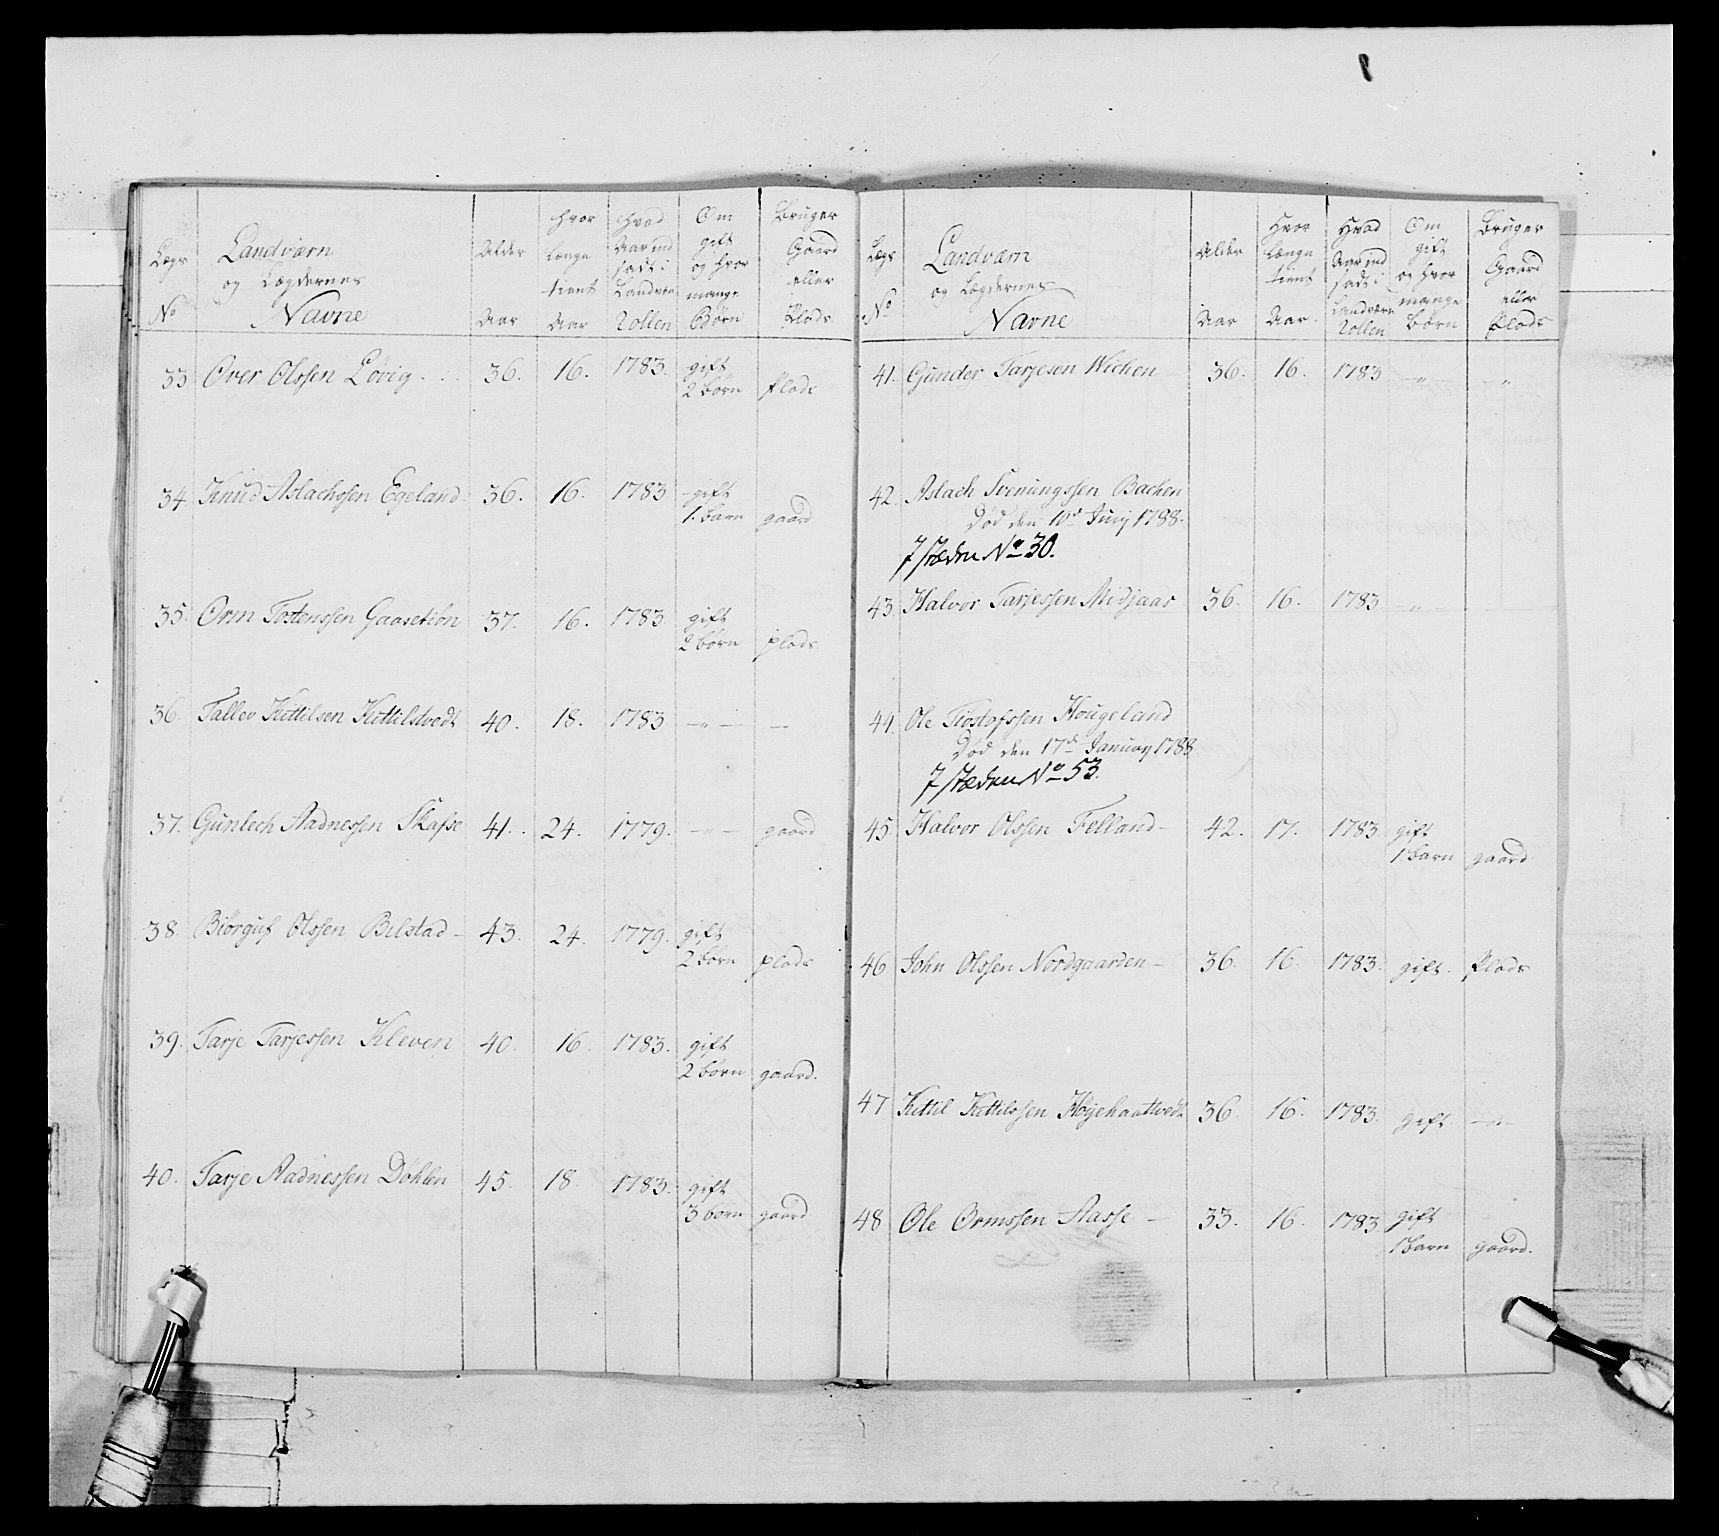 Lægs No | Landværn og Lægdernes Navne | Alder Aar | Hvor længe tient Aar | Hvad Aar ind sadt i Landværn Rollen | Om gift og hvor mange Børn | Bruger Gaard eller Plads
33. Over Olssen Lövig . . . 36. 16. 1783. gift
2 børn plads
34. Knud Aslachssen Egeland. 36. 16. 1783 gift
1. barn gaard
35. Orm Tostenssen 37. 16. 1783. gift
2 børn plads
36. Tallev Kittilsen Kittilstvedt 40. 18. 1783 — " — —
37. Gunlech Aadnessen Skafse 41. 24. 1779. — " — gaard
38. Biörguf Olssen Bilstad — 43. 24. 1779. gift
2 børn plads
39. Tarje Tarjessen Kleven 40. 16. 1783. gift
2 børn gaard.
40. Tarje Aadnessen Döhlen 45. 18. 1783. gift
3 børn gaard
Lægs No | Landværn og Lægdernes Navne | Alder Aar | Hvor længe tient Aar. | Hvad Aar ind sadt i Landværn Rollen | Om gift og hvor mange børn | Bruger Gaard eller Plads
41. Gunder Tarjesen Wichen 36. 16. 1783 — " — — "
42. Aslach Svenungssen Bachen
Död den 10d Junij 1788.
I stæden No 30.
43. Halvor Tarjessen Midjaas 36. 16. 1783 — " —
44. Ole Tiostofssen Hougeland
Död den 17d January 1788
I stæden No 53.
45. Halvor Olssen Felland — 42. 17. 1783. gift
1. barn gaard
46. John Olssen Nordgaarden — 36. 16. 1783. gift. Plads
47 Kittil Kittilssen 36. 16. 1783. gift — " —
48 Ole Ormssen Aasse — 33. 16. 1783 gift
1 barn gaard.